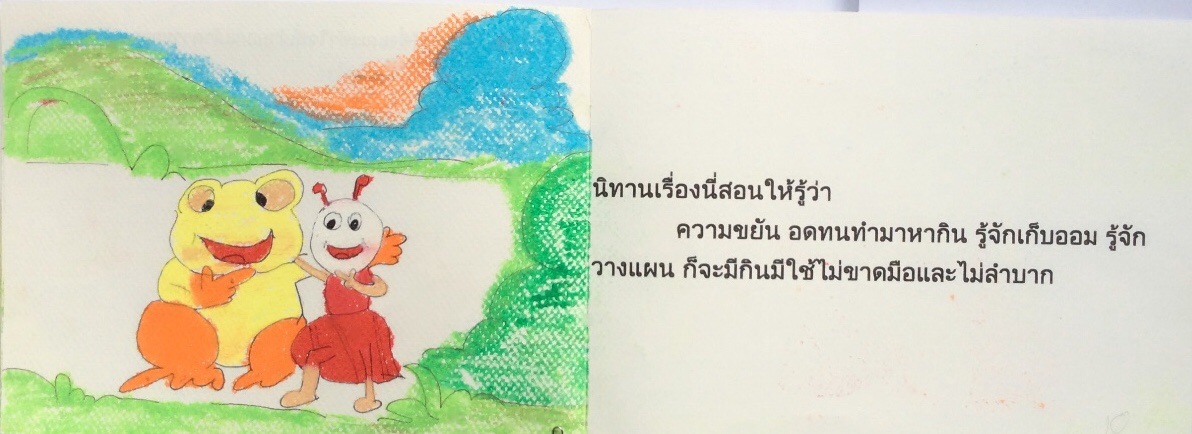 นิทานเรื่องนี่สอนให้รู้ว่า
ความขยัน อดทนทำมาหากิน รู้จักเก็บออม รู้จัก
วางแผน ก็จะมีกินมีใช้ไม่ขาดมือและไม่ลำบาก